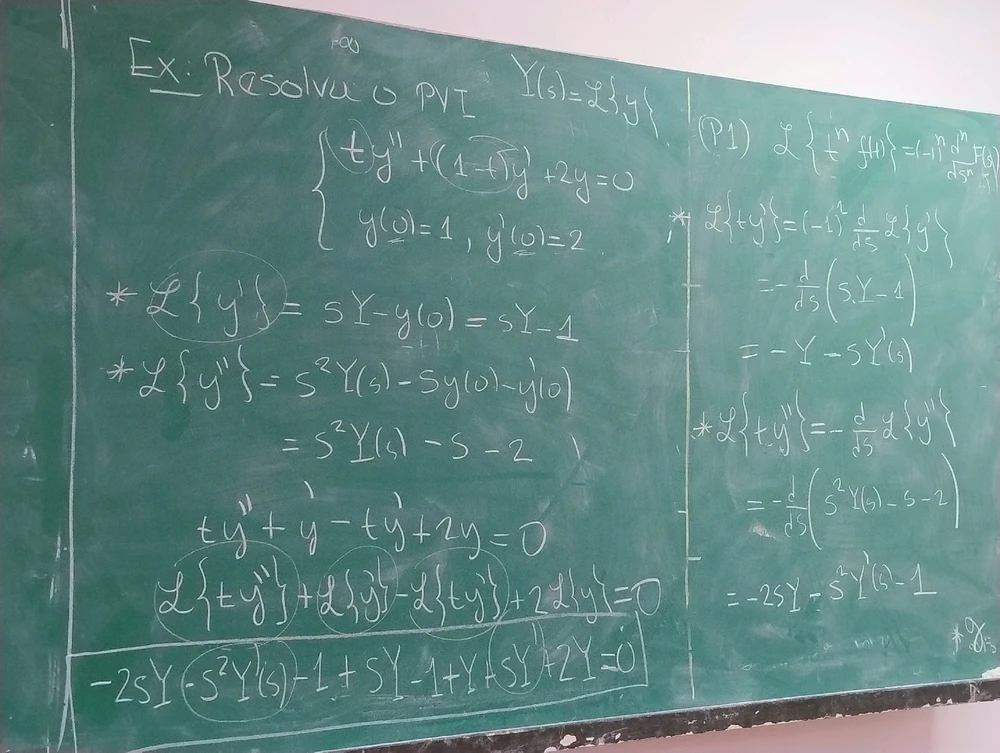 Ex: Resolva o PVI
+∞
Y(s)=ℒ{y}
ty''+(1-t)y'+2y=0
y(0)=1, y'(0)=2
* ℒ{y'}= sY-y(0)=sY-1
* ℒ{y''}=s²Y(s)-Sy(0)-y'(0)
=s²Y(s)-s-2
ty''+y'-ty'+2y=0
ℒ{ty''}+ℒ{y'}-ℒ{ty'}+2ℒ{y}=0
-2sY-s²Y'(s)-1+sY-1+Y+sY'+2Y=0
(P1) ℒ{tⁿ f(t)}=(-1)ⁿ dⁿ/dsⁿ F(s)
* ℒ{ty'}=(-1)¹ d/ds ℒ{y'}
=-d/ds(sY-1)
=-Y-sY'(s)
* ℒ{ty''}=-d/ds ℒ{y''}
=-d/ds(s²Y(s)-s-2)
=-2sY-s²Y'(s)-1